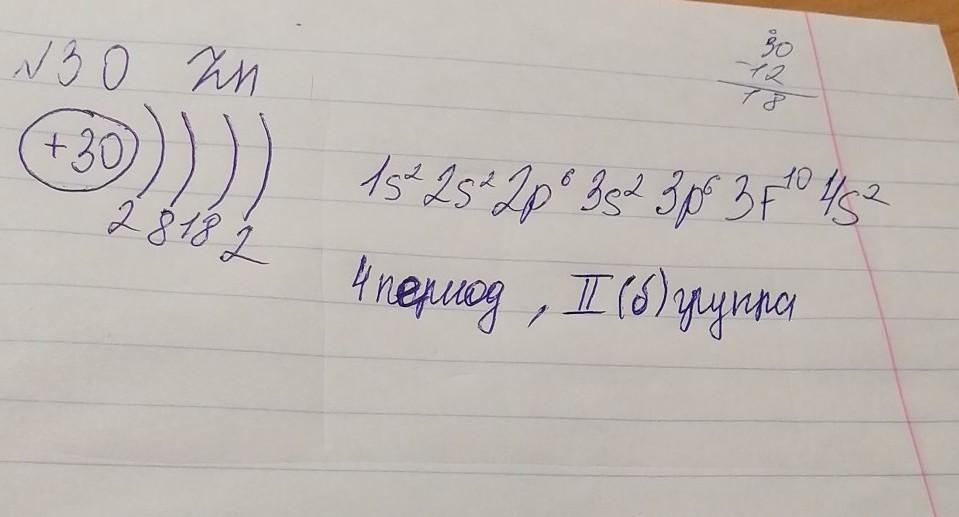 №30 Zn
30
-12
18
+30
2 8 18 2
1s² 2s² 2p⁶ 3s² 3p⁶ 3F¹⁰ 4s²
4 период, II (б) группа